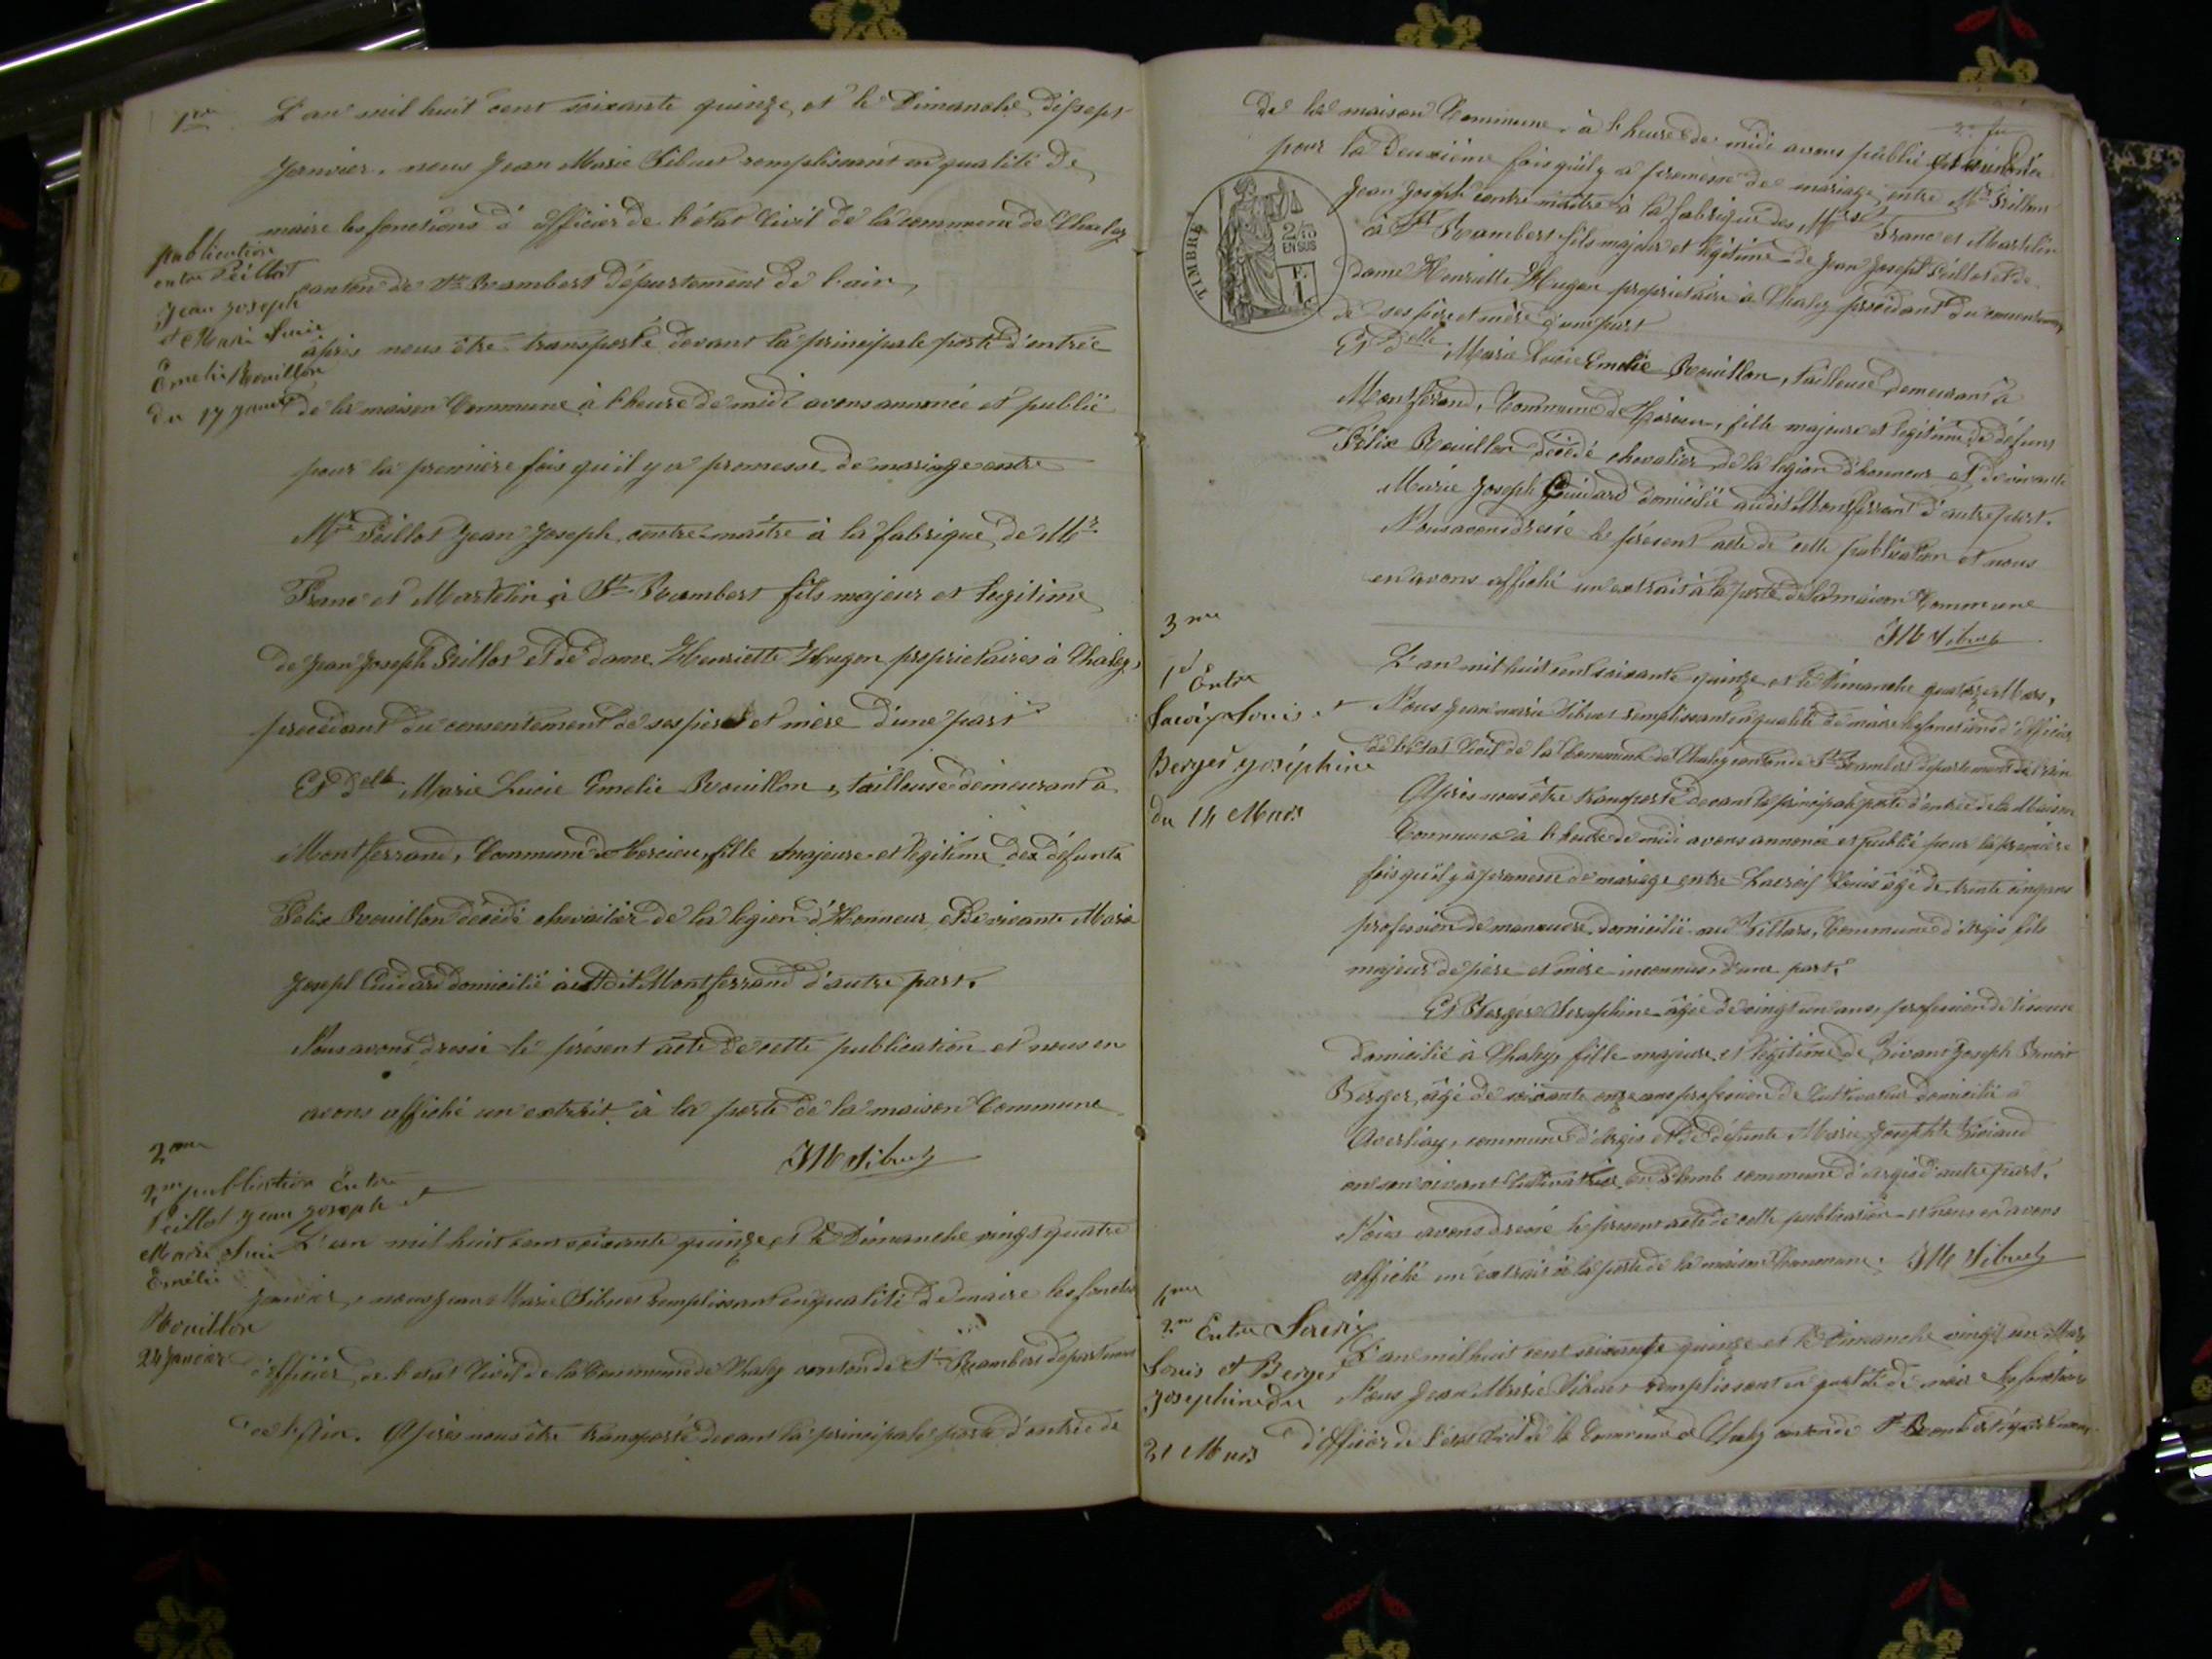 1re
L'an mil huit cent soixante quinze, et le Dimanche dixsept
Janvier, nous Jean Marie Sibuet remplissant en qualité de
maire les fonctions d'officier de l'état Civil de la commune de Chaley
canton de St Rambert département de l'ain,
après nous être transporté devant la principale porte d'entrée
de la maison Commune à l'heure de midi avons annoncé et publié
pour la première fois qu'il y a promesse de mariage entre
Mr Peillot Jean Joseph, contre-maître à la fabrique de Mrs
Franc et Martelin à St Rambert fils majeur et legitime
de Jean Joseph Peillot et de dame Henriette Hugon proprietaires à Chaley,
procédant du consentement de ses père et mère d'une part
Et Delle Marie Lucie Emelie Rouillon, tailleuse demeurant à
Montferrand, Commune de fille majeure et légitime des défunts
Félix Rouillon décédé chevalier de la légion d'Honneur, et de vivante Marie
Joseph domicilié audit Montferrand d'autre part.
Nous avons dressé le présent acte de cette publication et nous en
avons affiché un extrait à la porte de la maison Commune
JM Sibuet
publication
entre Peillot
Jean Joseph
et Marie Lucie
Emelie Rouillon
du 17 Janvier
2me
2me publication Entre
Peillot Jean Joseph et
Marie Lucie
Emélie
Rouillon
24 Janvier
L'an mil huit cent soixante quinze et le Dimanche vingt quatre
Janvier, nous Jean Marie Sibuet remplissant en qualité de maire les fonctions
d'officier de l'etat Civil de la Commune de Chaley canton de St Rambert département
de l'Ain. Après nous être transporté devant la principale porte d'entrée de
de la maison Commune, à l'heure de midi avons publié et annoncé
pour la deuxième fois qu'il y a promesse de mariage entre Mr Peillot
Jean Joseph contre maître à la fabrique des Mrs Franc et Martelin
à St Rambert fils majeur et légitime de Jean Joseph Peillot et de
dame Henriette Hugon proprietaire à Chaley procédant du consentement
de ses père et mère d'une part
TIMBRE
2/10
EN SUS
F.
1
Et Delle Marie Lucie Emelie Rouillon, tailleuse demeurant à
Montferrand, Commune de fille majeure et légitime de défunt
Félix Rouillon décédé chevalier de la légion d'honneur et de vivante
Marie Joseph domicilié audit Montferrand d'autre part.
Nous avons dressé le présent acte de cette publication et nous
en avons affiché un extrait à la porte de la maison Commune
JM Sibuet
3me
1re Entre
Louis et
Berger Joséphine
du 14 Mars
L'an mil huit cent soixante quinze et le Dimanche quatorze Mars,
Nous Jean marie Sibuet remplissant en qualité de maire les fonctions d'officier
de l'état Civil de la Commune de Chaley canton de St Rambert département de l'ain
Après nous être transporté devant la principale porte d'entrée de la Maison
Commune à l'heure de midi avons annoncé et publié pour la première
fois qu'il y a promesse de mariage entre Louis âgé de trente cinq ans
profession de manœuvre domicilié au Villars, Commune d'Argis fils
majeur de père et mère inconnus d'une part.
Et Berger Josephine âgée de vingt un ans, profession de
domicilié à Chaley, fille majeure et légitime de Vivant Joseph Benoit
Berger, âgé de soixante onze ans profession de Cultivateur domicilié à
commune d'Argis et de défunte Marie Josephte
en son vivant Cultivatrice commune d'argis d'autre part.
Nous avons dressé le présent acte de cette publication et nous en avons
affiché un extrait à la porte de la maison Commune. JM Sibuet
4me
2me Entre
Louis et Berger
Josephine du
21 Mars
L'an mil huit cent soixante quinze et le Dimanche vingt un Mars
Nous Jean Marie Sibuet remplissant en qualité de maire les fonctions
d'Officier de l'état Civil de la Commune de Chaley canton de St Rambert département